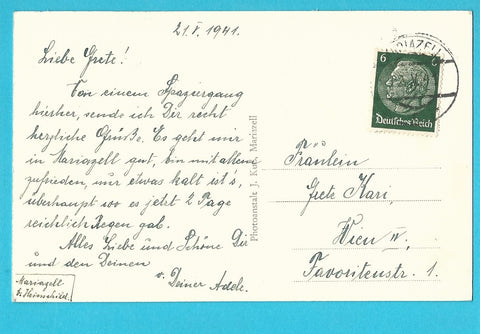 21.V.1941.
Liebe Grete!
Von einem Spaziergang
hierher, sende ich Dir recht
herzliche Grüße. Es geht mir
in Mariazell gut, bin mit allem
zufrieden, nur etwas kalt ist's,
überhaupt wo es jetzt 2 Tage
reichlich Regen gab.
Alles Liebe und Schöne Dir
und den Deinen
v. Deiner Adele.
Mariazell
Photoanstalt J. Kuss, Mariazell
MARIAZELL
6 6
Deutsches Reich
Fräulein
Grete Kari,
Wien IV.
Favoritenstr. 1.